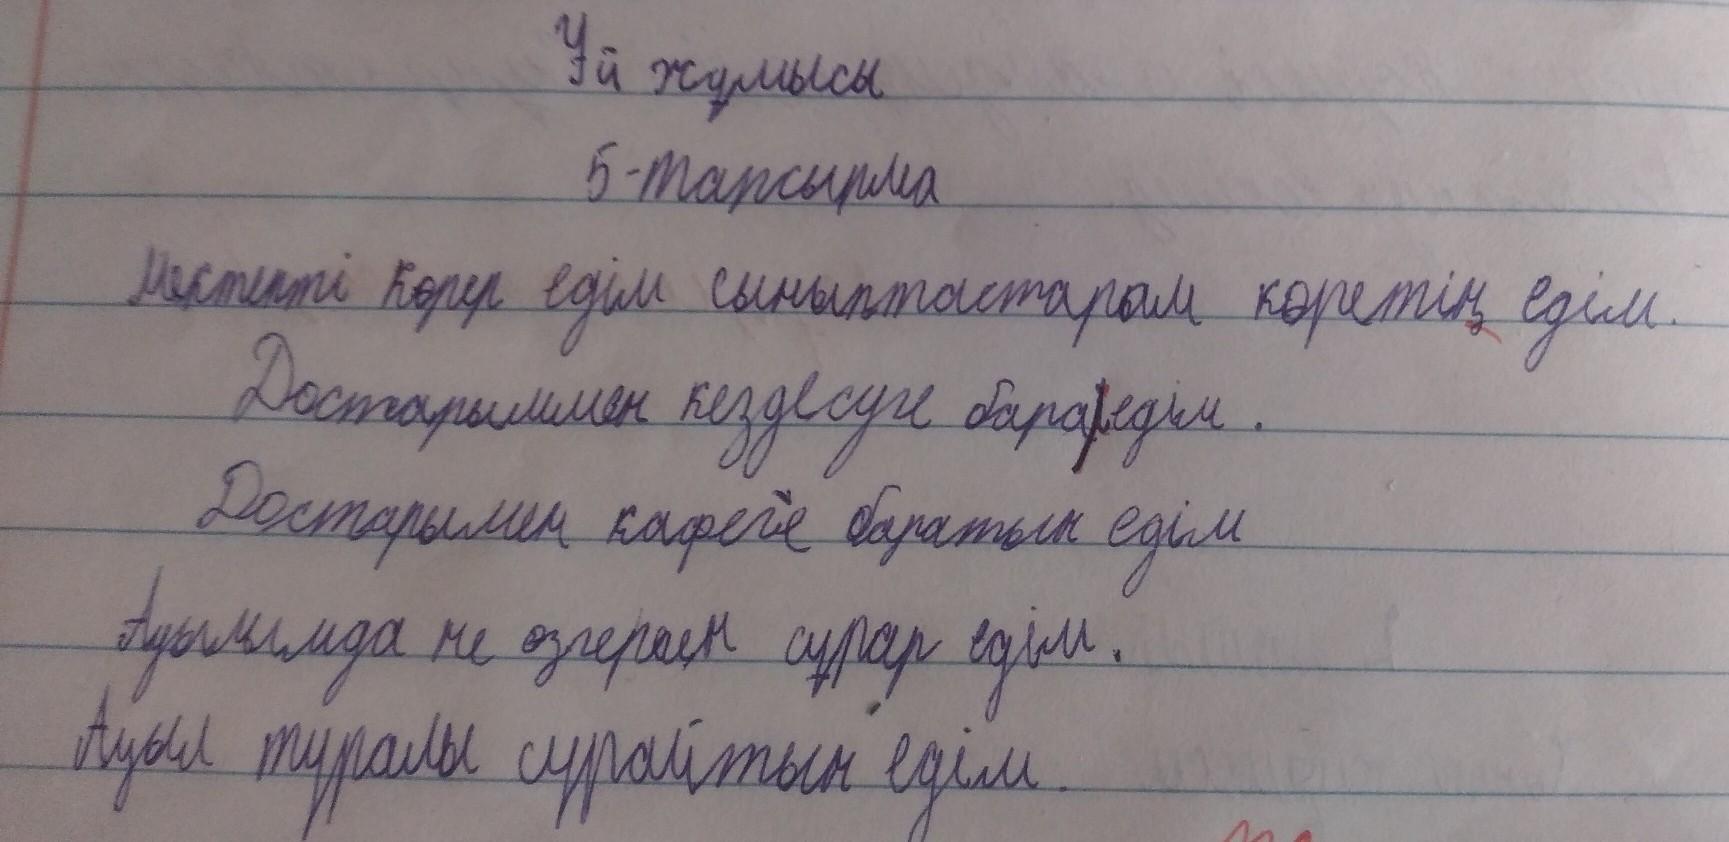 Үй жұмысы
5-тапсырма
Мектепті көрер едім сыныптастарам көретің едім.
Достарыммен кездесуге барар едім.
Достарымен кафеге баратын едім
Ауылымда не өзгерген сұрар едім.
Ауыл туралы сұрайтын едім.